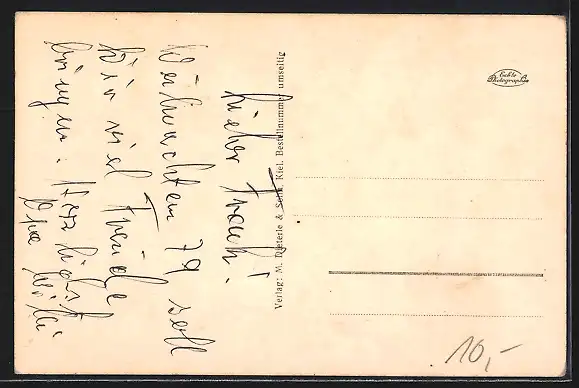 Lieber Frank!
Weihnachten 79 soll
Dir viel Freude
bringen. Herzlichst
Opa Willi
Verlag: M. Dieterle & Sohn, Kiel. Bestellnummer umseitig
Echte
Photographie
10,-